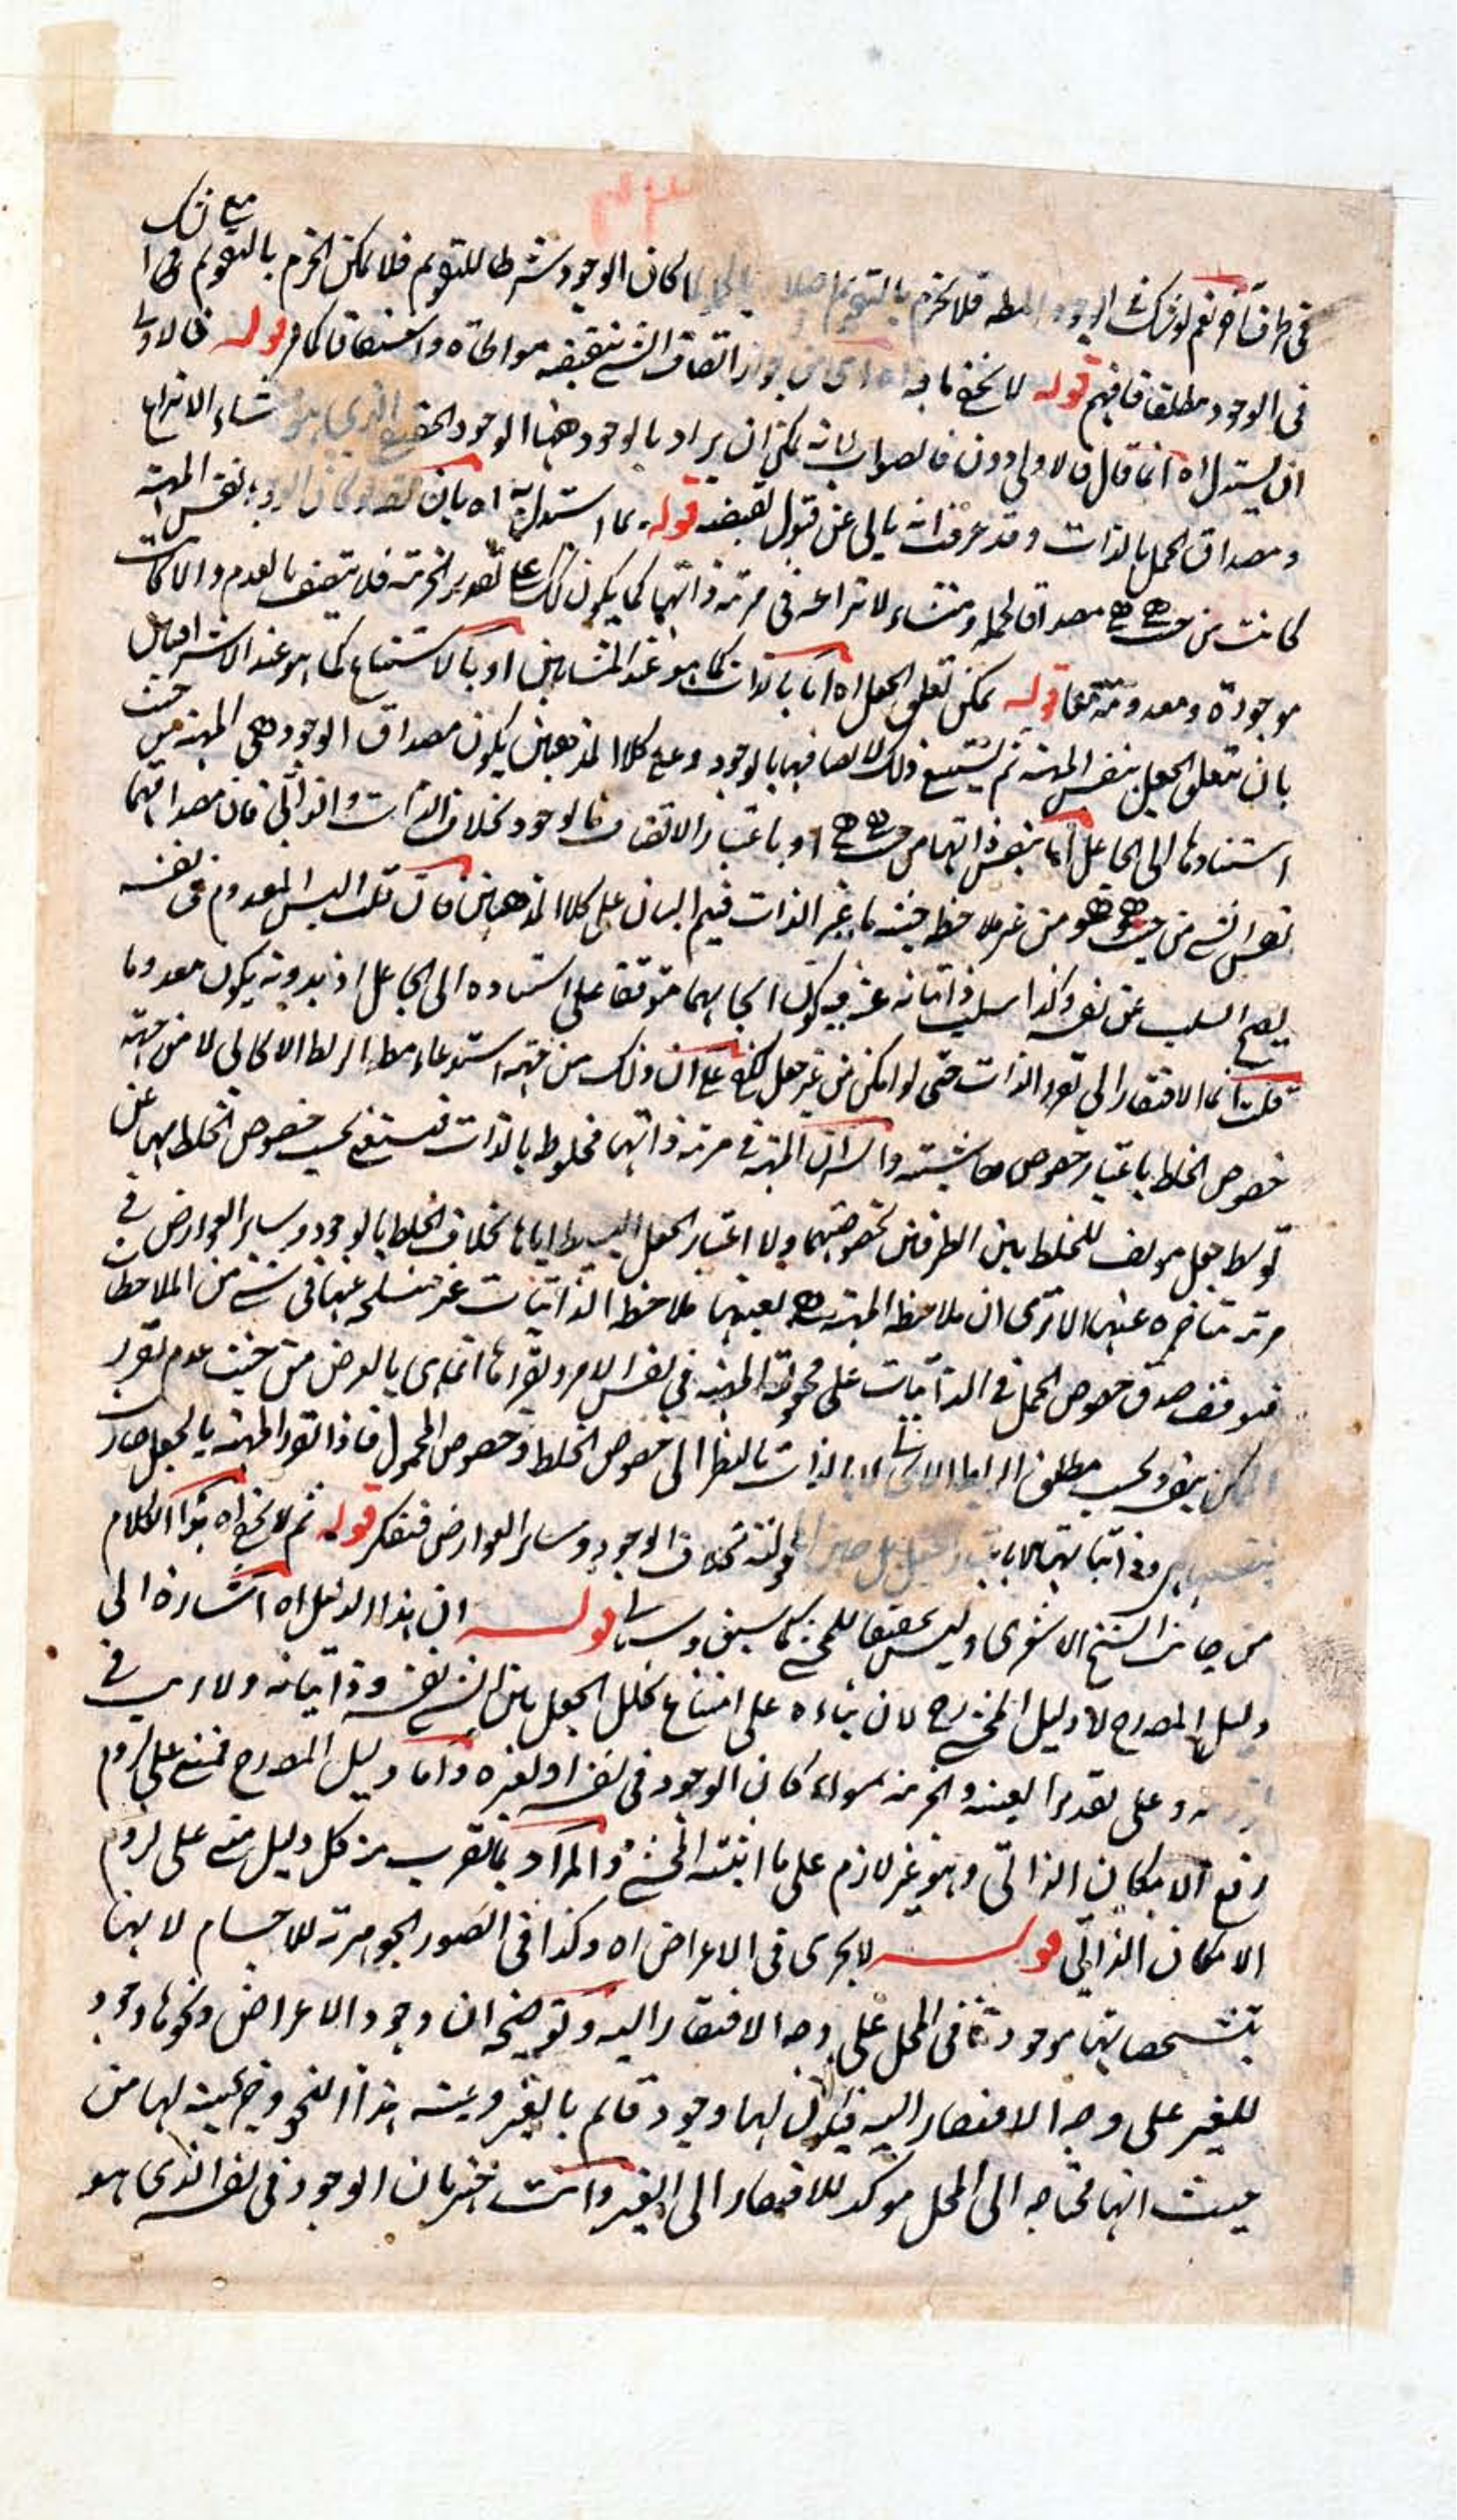 مع شك
في طرف آخر نعم لو شك في الوجود المط فلا يجزم بالتقويم اصلا كان الوجود شرطا للتقويم فلا يمكن الجزم بالتقويم
في الوجود مطلقا فافهم قوله لا يخفى ما فيه جواز اتصاف الشيء بنقيضه مواطاة واشتقاقا كما مر قوله فالاولى
ان يستدل اه انما قال فالاولى دون فالصواب لانه يمكن ان يراد بالوجود ههنا الوجود الحقيقي الذي هو منشاء الانتزاع
ومصداق الحمل بالذات وقد عرفت انه يابى عن قبول نقيضه قوله بما استدل به اه بان لو كان الوجود نفس المهية
كانت من حيث هي هي مصداق لحمله ومنشاء لانتزاعه في مرتبة ذاتها كما يكون ذلك على تقدير الجزئية فلا يتصف بالعدم والا كانت
موجودة ومعدومة معا قوله يمكن تعلق الجعل اه اما بالذات كما هو عند المشائين او بالاستتباع كما هو عند الاشراقيين
بان يتعلق الجعل بنفس المهية ثم يستتبع ذلك الاتصافها بالوجود وعلى كلا المذهبين يكون مصداق الوجود هي المهية من حيث
استنادها الى الجاعل اما بنفس ذاتها من حيث هي هي او باعتبار الاتصاف بالوجود بخلاف الذات والذاتي فان مصداقهما
نفس الشيء من حيث هو هو من غير ملاحظة حيثية ما غير الذات فيتم البيان على كلا المذهبين فان قلت اليس المعدوم في نفسه
يصح السلب عن نفسه وكذا سلب ذاتياته عنه فيكون ايجابهما متوقفا على استناده الى الجاعل اذ بدونه يكون معدوما
قلت انما الافتقار الى تقرر الذات حتى لو امكن من غير جعل لكفى على ان ذلك من جهة استدعاء مط الربط الايجابي لا من جهة
خصوص الخلط باعتبار خصوص حاشيتيه والسر ان المهية في مرتبة ذاتها مخلوط بالذات فتستغني بحسب خصوص الخلط بهما عن
توسط جعل مؤلف للخلط بين الطرفين بخصوصهما ولا اعتبار الجعل البسيط اياها بخلاف الخلط بالوجود وسائر العوارض في
مرتبة متاخرة عنها الا ترى ان ملاحظة المهية هي بعينها ملاحظة الذاتيات غير منسلخة عنها في شيء من الملاحظات
فتوقف صدق خصوص الحمل في الذاتيات على مجعولية المهية في نفس الامر وتقررها انما هي بالعرض من حيث عدم تقرر
الممكن بنفسه وبحسب مطلق الربط الايجابي لا بالذات بالنظر الى خصوص الخلط وخصوص المحمول فاذا تقرر المهية بالجعل صار
وذاتياتها لا باعتبار الجعل بل حين بخلاف الوجود وسائر العوارض فتفكر قوله ثم لا يخفى اه هذا الكلام
من جانب الشيخ الاشعري وليس تحقيقا للمحشي كما سبق وسياتي قوله ان هذا الدليل اه اشارة الى
دليل المصرح لا دليل المحشي رح لان بناءه على امتناع تخلل الجعل بين الشيء نفسه وذاتياته ولا ريب في
وعلى تقدير العينية والجزئية سواء كان الوجود في نفسه او لغيره واما دليل المصرح فمبني على لزوم
رفع الامكان الذاتي وهو غير لازم على ما اثبته المحشي والمراد بالتقريب من كل دليل مبني على لزوم
الامكان الذاتي قوله لا يجري في الاعراض اه وكذا في الصور الجوهرية للاجسام لانها
بتشخصاتها موجودة في المحل على وجه الافتقار اليه وتوضيحه ان وجود الاعراض ونحوها وجود
للغير على وجه الافتقار اليه فيكون لها وجود قائم بالغير وعينية هذا النحو وجزئيته لها من
حيث انها محتاجة الى المحل مؤكد للافتقار الى الغير وانت خبير بان الوجود في نفسه الذي هو